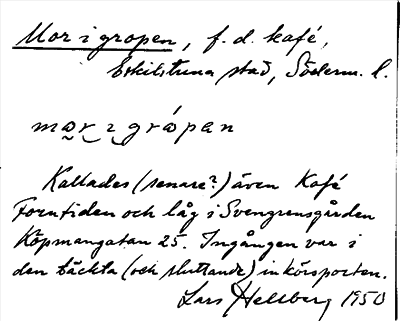 Mor i gropen, f.d. kafé,
Eskilstuna stad, Söderm. l.
mor i gråpen
Kallades (senare?) även Kafé
Forntiden och låg i Svengrensgården
Köpmangatan 25. Ingången var i
den täckta (och sluttande) inkörsporten.
Lars Hellberg 1950